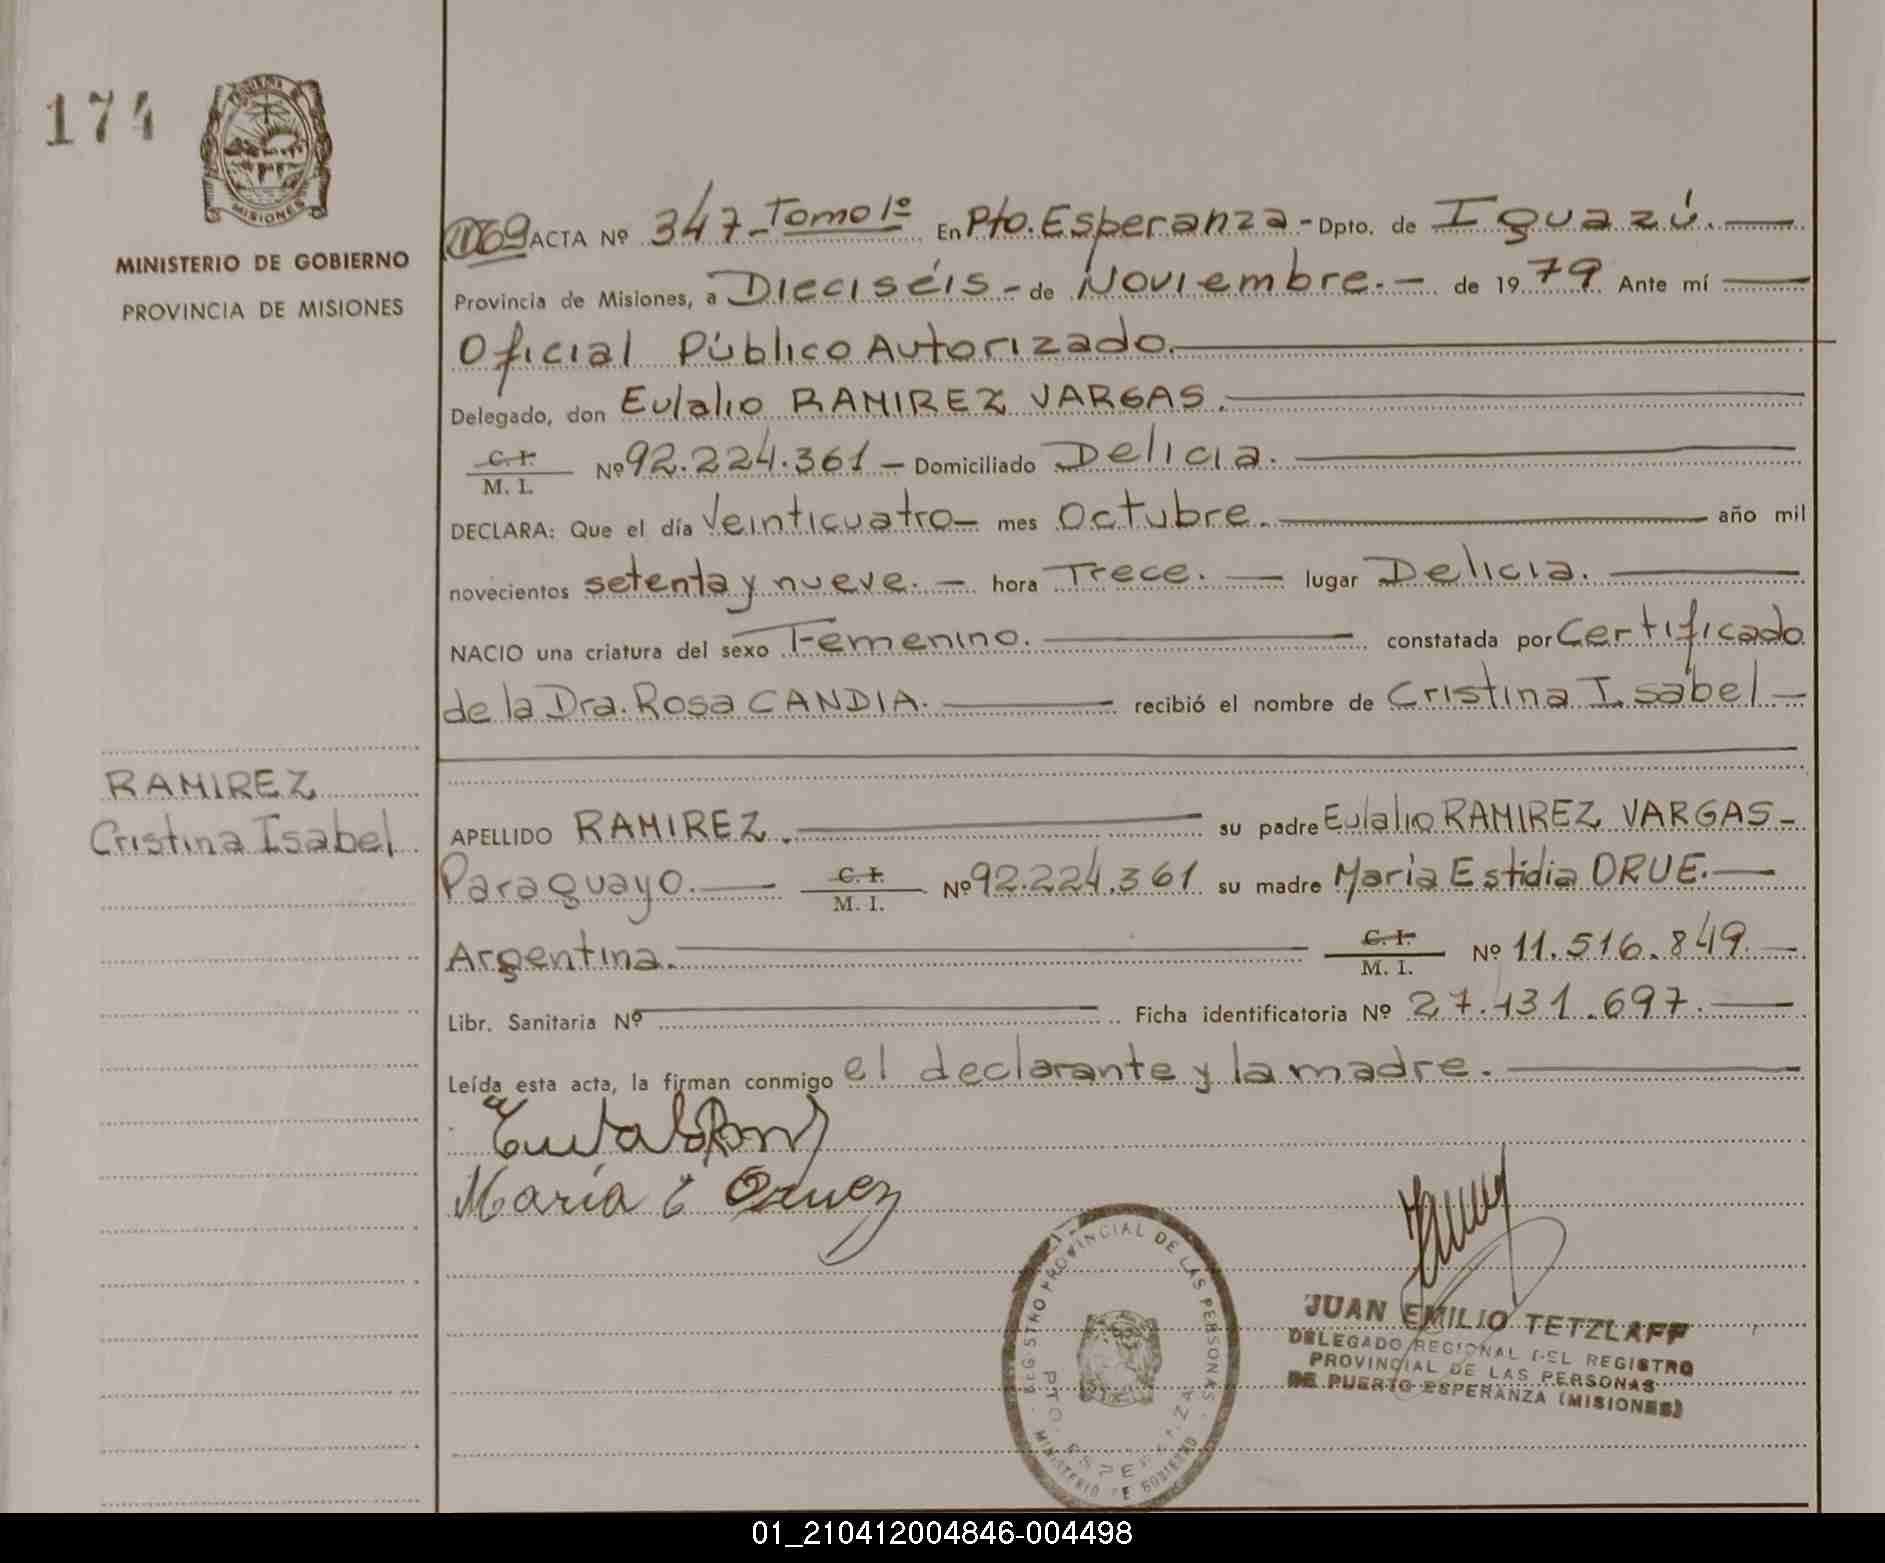 174
MISIONES
MINISTERIO DE GOBIERNO
PROVINCIA DE MISIONES
ACTA Nº 347 - Tomo 1º En Pto. Esperanza - Dpto. de Iguazú. —
Provincia de Misiones, a Dieciséis - de Noviembre. - de 1979 Ante mí —
Oficial Público Autorizado. —
Delegado, don Eulalio RAMIREZ VARGAS. —
C. I. / M. I. Nº 92.224.361 — Domiciliado Delicia. —
DECLARA: Que el día Veinticuatro — mes Octubre. — año mil
novecientos setenta y nueve. — hora Trece. — lugar Delicia. —
NACIO una criatura del sexo Femenino. — constatada por Certificado
de la Dra. Rosa CANDIA. — recibió el nombre de Cristina Isabel —
RAMIREZ
Cristina Isabel
APELLIDO RAMIREZ. — su padre Eulalio RAMIREZ VARGAS -
Paraguayo. — C. I. / M. I. Nº 92.224.361 su madre María Estidia ORUE. —
Argentina. — C. I. / M. I. Nº 11.516.849. —
Libr. Sanitaria Nº — Ficha identificatoria Nº 27.131.697. —
Leída esta acta, la firman conmigo el declarante y la madre. —
María E Oruez
REGISTRO PROVINCIAL DE LAS PERSONAS
PTO. ESPERANZA
MINISTERIO DE GOBIERNO
JUAN EMILIO TETZLAFF
DELEGADO REGIONAL DEL REGISTRO
PROVINCIAL DE LAS PERSONAS
DE PUERTO ESPERANZA (MISIONES)
01_210412004846-004498